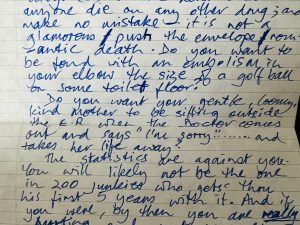 anytime die on any other drug; and
make no mistake – it is not a
glamorous / push the envelope / rom-
-antic death. Do you want to
be found with an embolism in
your elbow the size of a golf ball
on some toilet floor?
Do you want your gentle, loving,
kind mother to be sitting outside
the E.R. when the Doctor comes
out and says "I'm sorry"...... and
takes her life away?
The statistics are against you.
You will likely not be the one
in 200 junkies who gets thru
his first 5 years with it. And if
you were, by then you are really
hurting